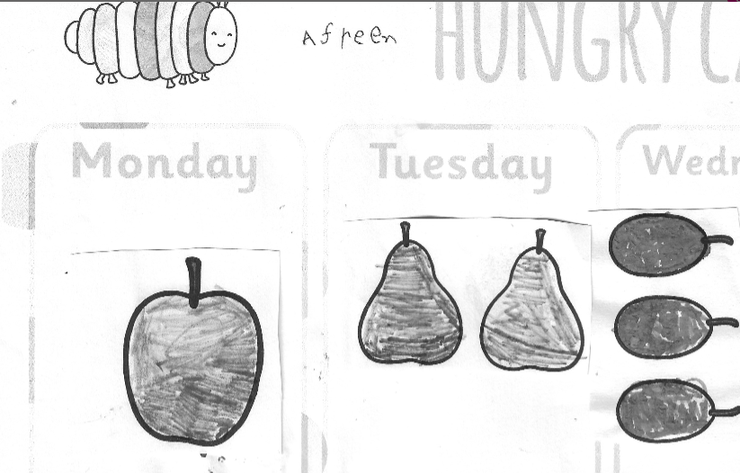 Afreen
HUNGRY CA
Monday
Tuesday
Wedn